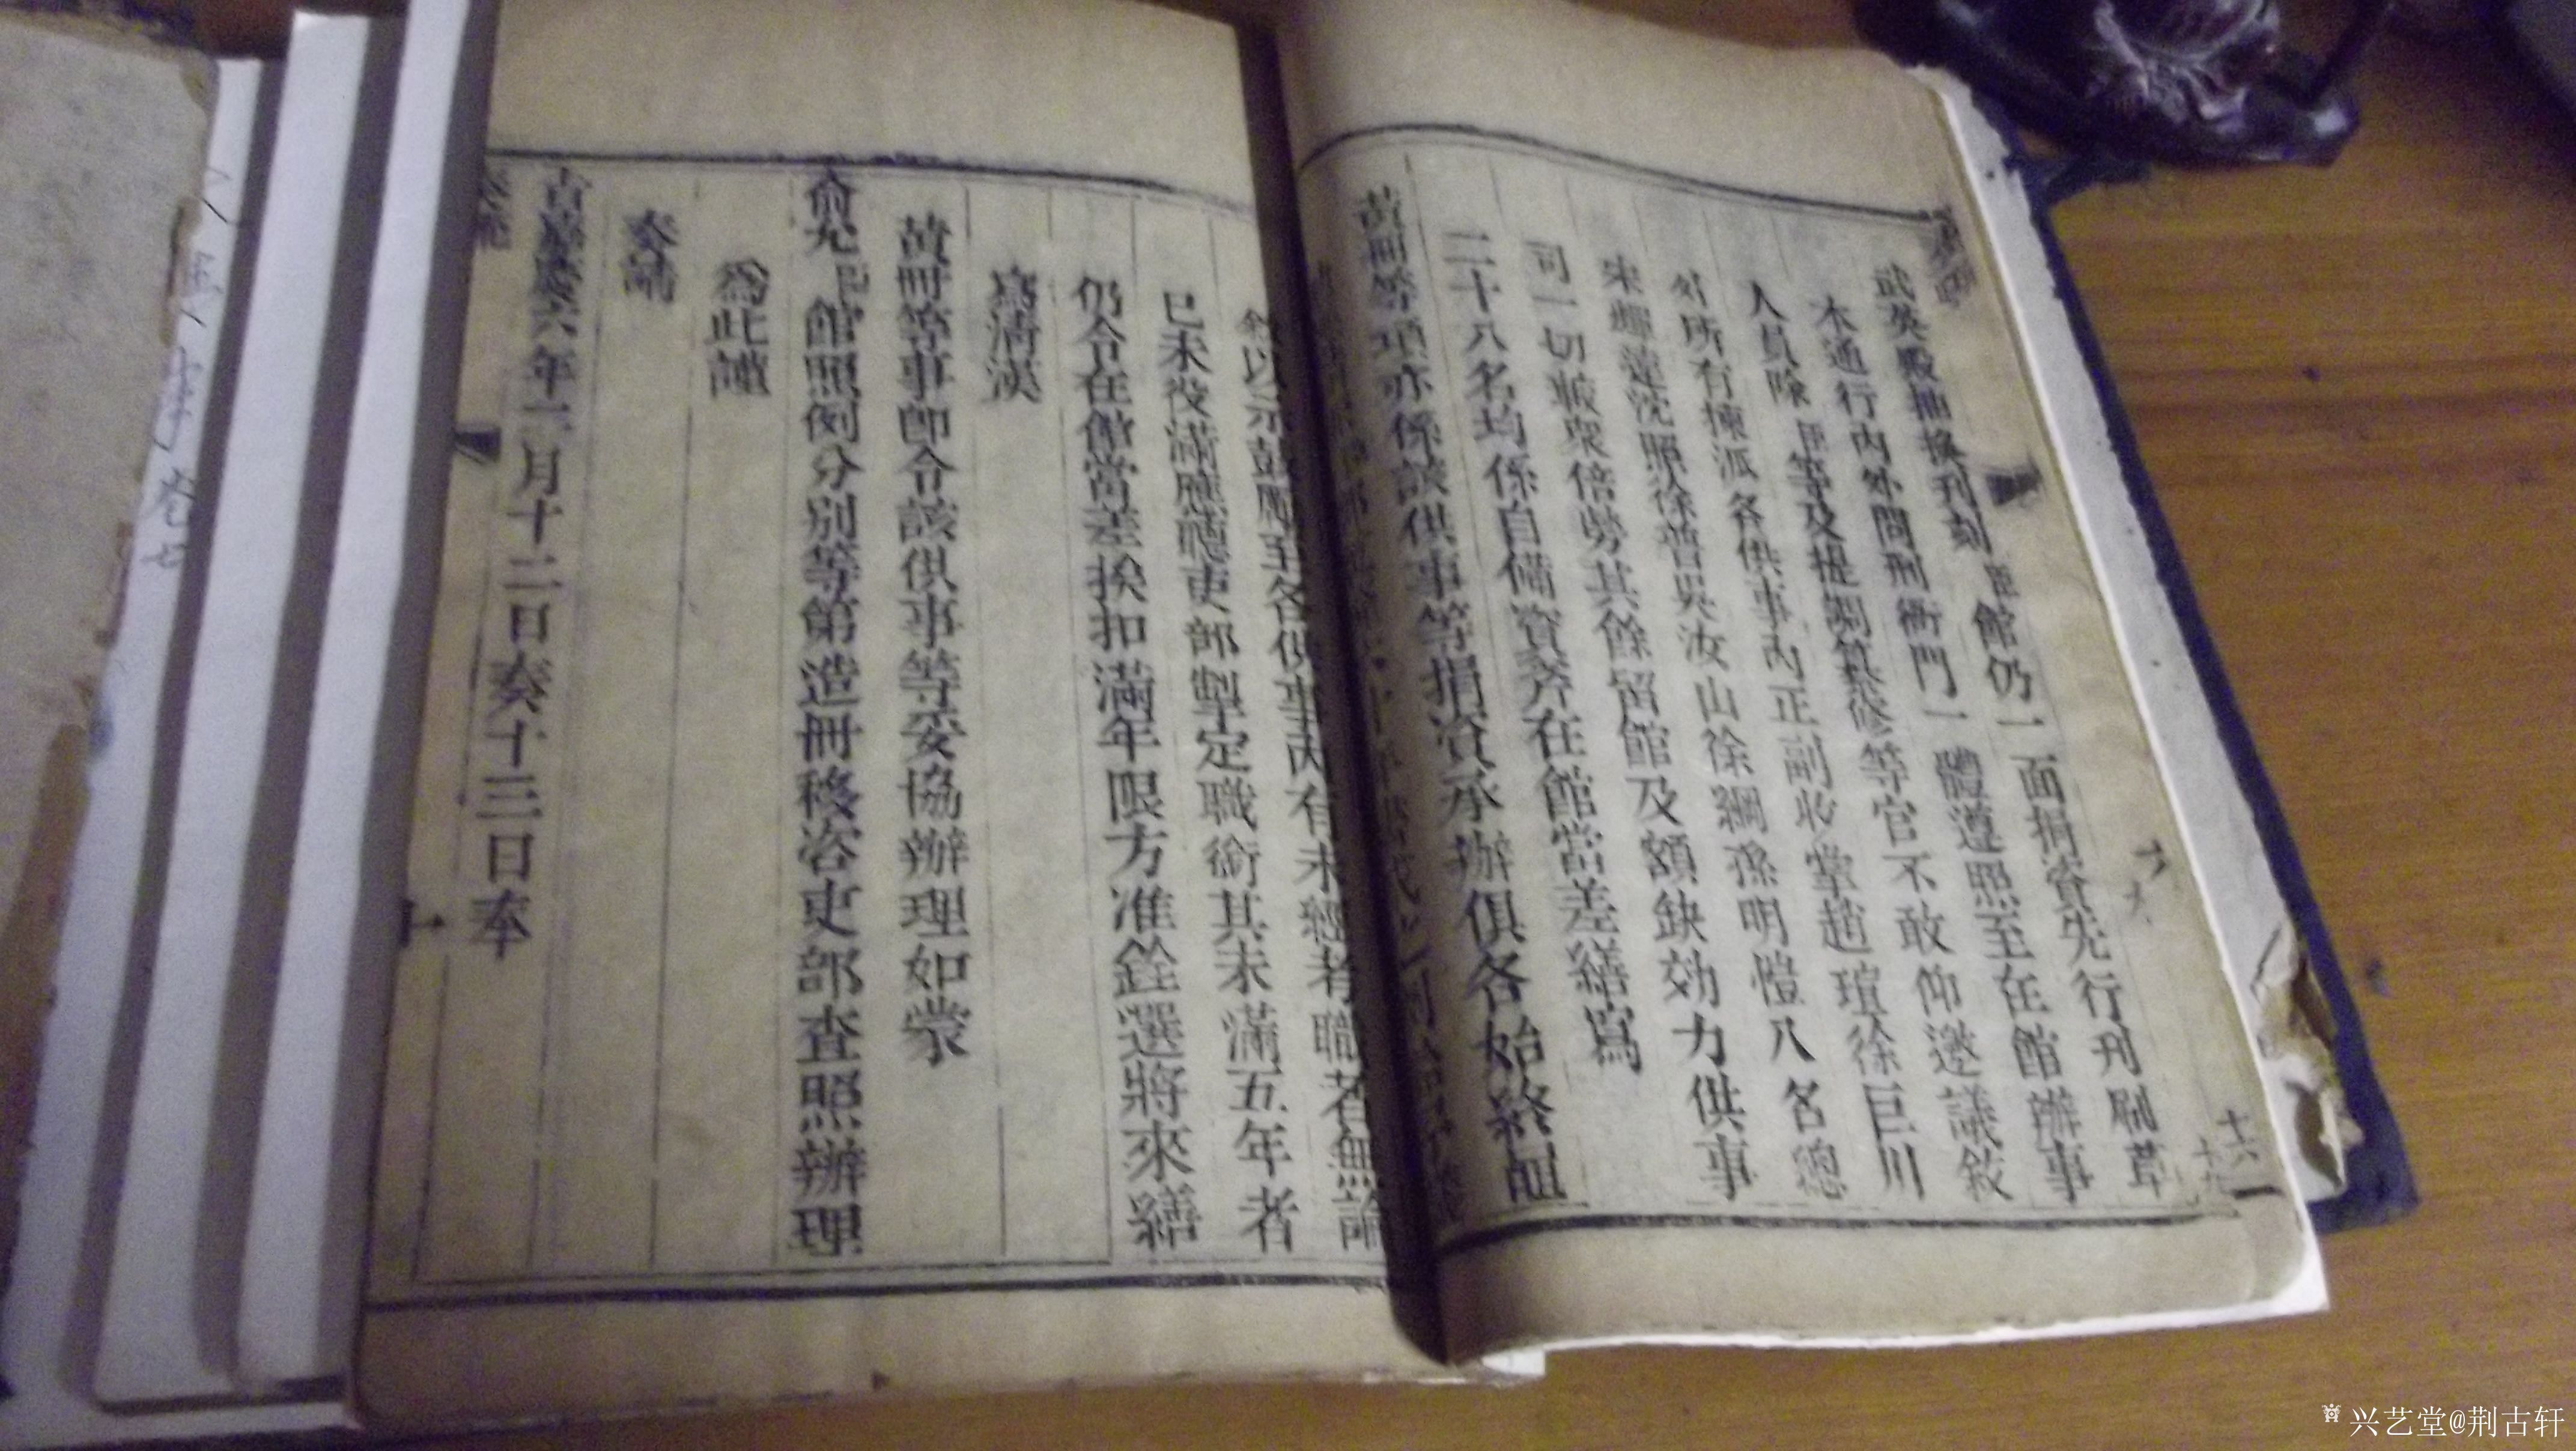 武英殿抽換刊刻臣館仍一面捐資先行刊刷草
本通行內外問刑衙門一體遵照至在館辦事
人員除臣等及提調纂修等官不敢仰邀議敘
外所有揀派各供事內正副收掌趙瑄徐巨川
宋輝蓮沈照徐普吳汝山徐綱孫明愷八名總
司一切較衆倍勞其餘留館及額缺効力供事
二十八名均係自備資斧在館當差繕寫
黃冊等項亦係該供事等捐資承辦俱各始終
以示鼓勵至各供事內有未經考職者無論
已未役滿應聽吏部掣定職銜其未滿五年者
仍令在館當差挨扣滿年限方准銓選將來繕
寫清漢
黃冊等事卽令該供事等妥協辦理如蒙
俞允臣館照例分別等第造冊移咨吏部查照辦理
爲此謹
奏請
旨嘉慶六年二月十二日奏十三日奉
十
卷七
兴艺堂@荆古轩